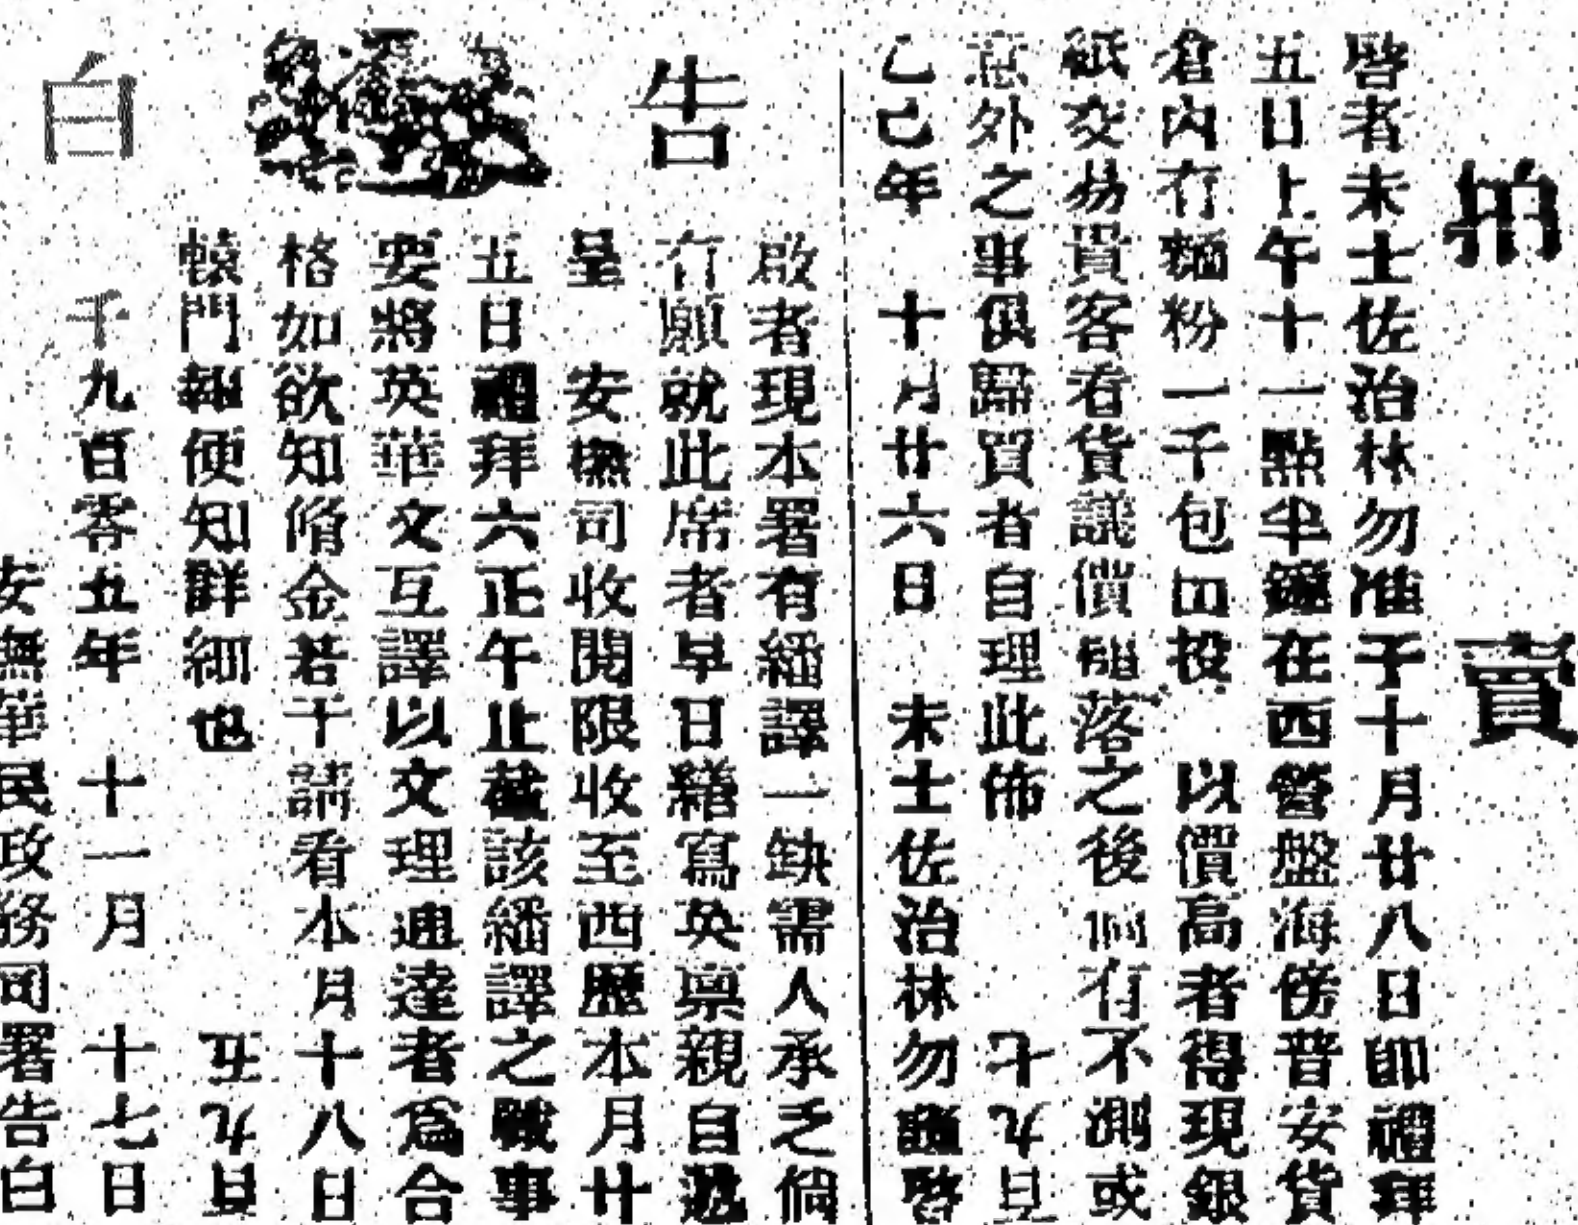 拍賣
啓者末士佐治林勿准于十月廿八日即禮拜
五日上午十一點半鐘在西營盤海傍普安貨
倉內有麵粉一千包出投 以價高者得現銀
紙交易貴客看貨議價 落之後 有不測或
意外之事俱歸買者自理此佈 七九百
乙巳年 十月廿六日 末士佐治林勿謹啓
告白
啟者現本署有繙譯一缺需人承乏倘
有願就此席者早日繕寫英稟親自遞
呈 安撫司收閱限收至西歷本月廿
五日禮拜六正午止截該繙譯之職事
要將英華文互譯以文理通達者為合
格如欲知脩金若干請看本月十八日
轅門報便知詳細也 五九百
一千九百零五年 十一月 十七日
安撫華民政務司署告白